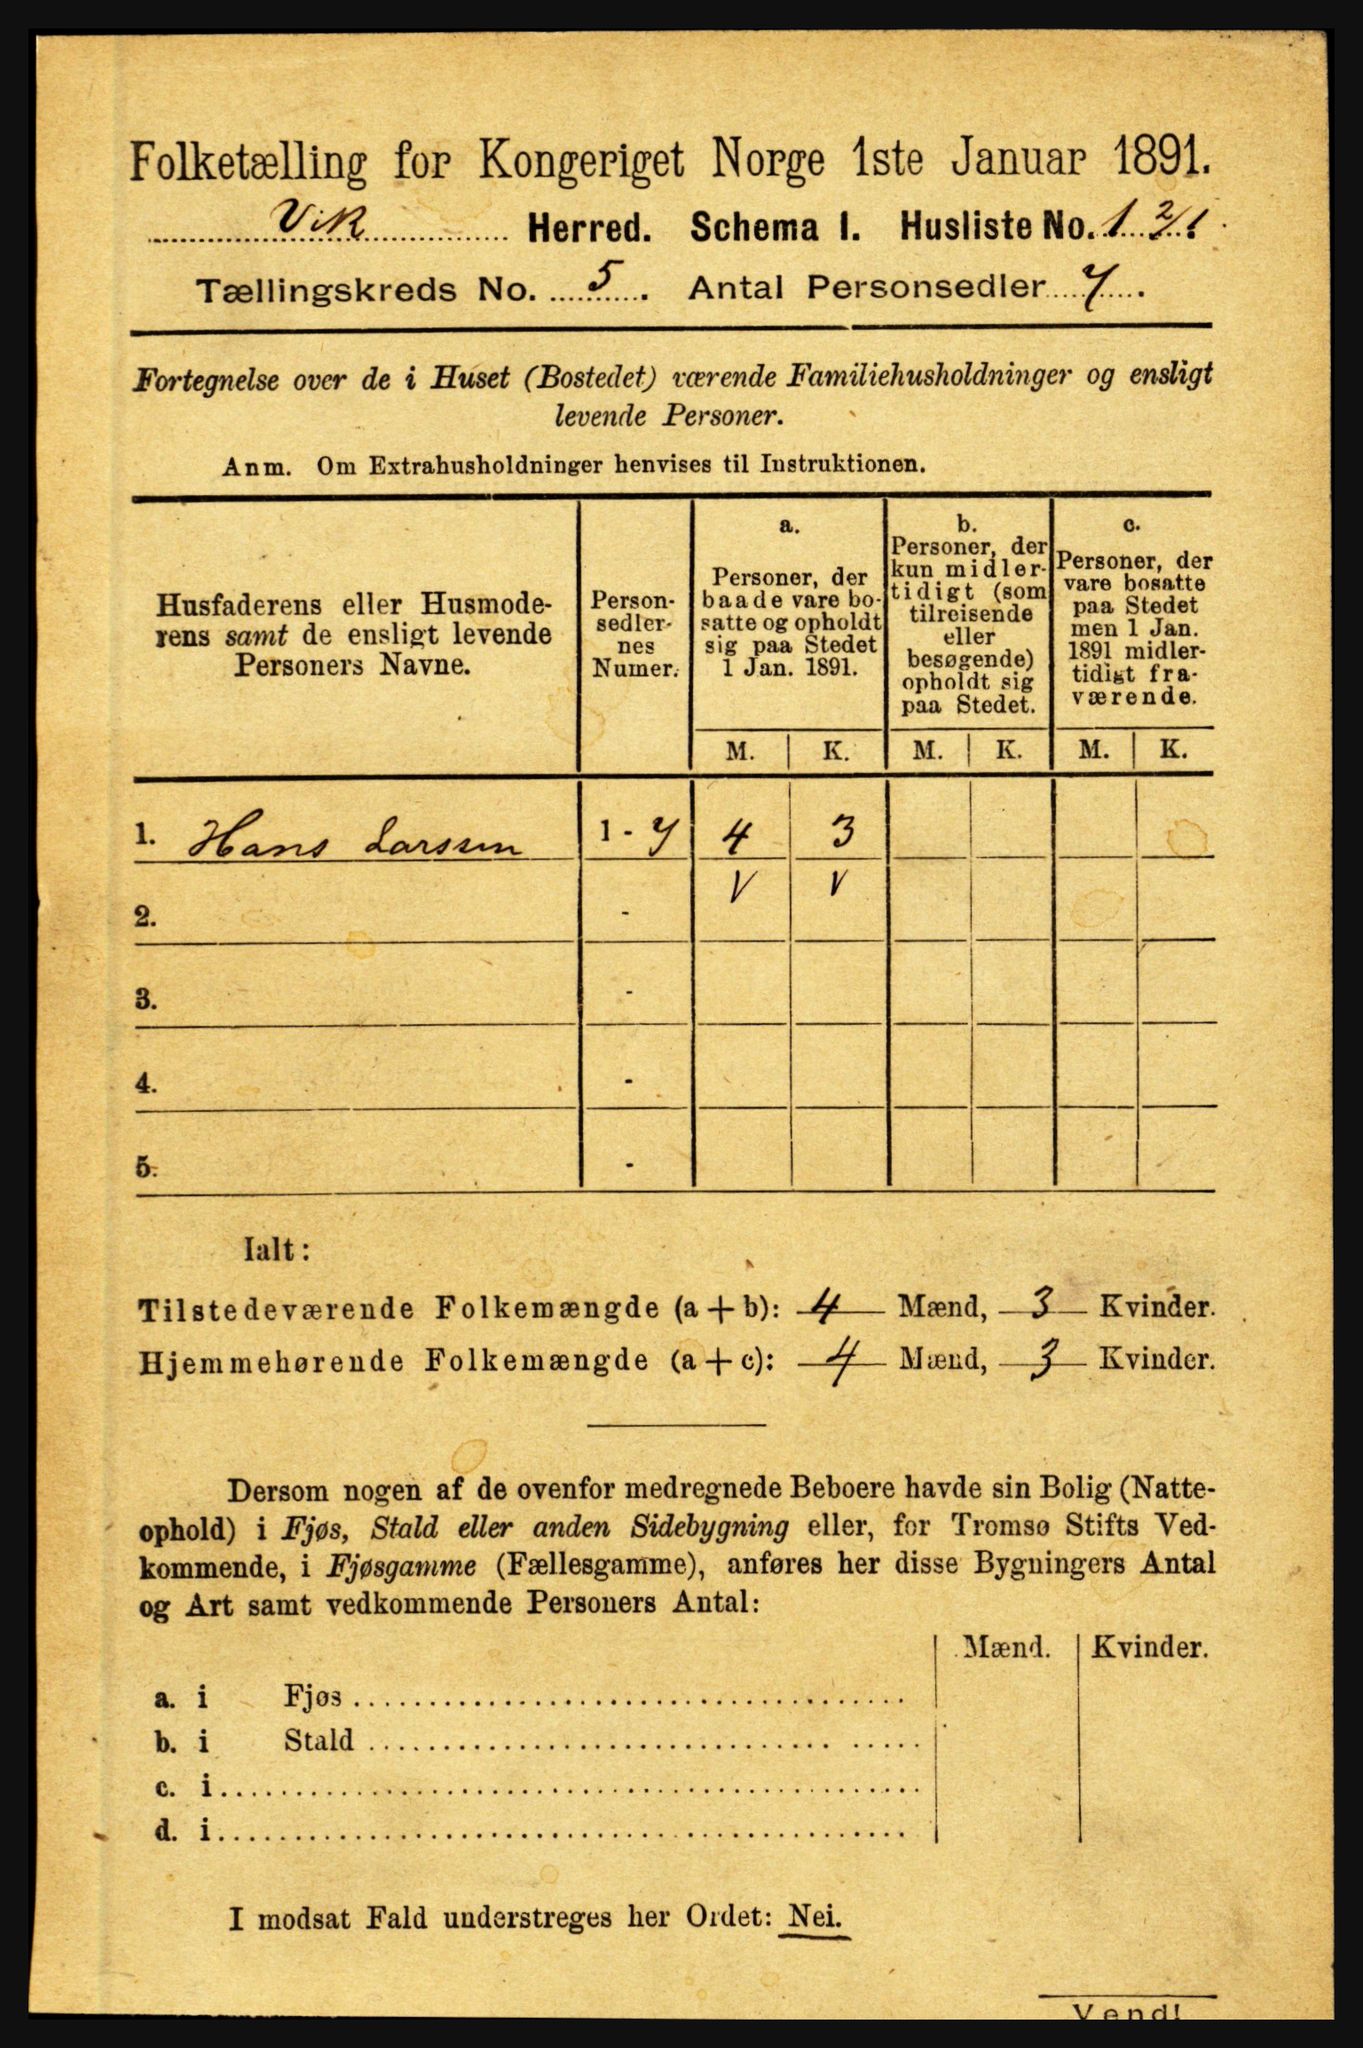 Folketælling for Kongeriget Norge 1ste Januar 1891.
Vik Herred. Schema I. Husliste No. 1 2/1
Tællingskreds No. 5. Antal Personsedler 7.
Fortegnelse over de i Huset (Bostedet) værende Familiehusholdninger og ensligt
levende Personer.
Anm. Om Extrahusholdninger henvises til Instruktionen.
Husfaderens eller Husmode-
rens samt de ensligt levende
Personers Navne.
Person-
sedler-
nes
Numer.
a.
Personer, der
baade vare bo-
satte og opholdt
sig paa Stedet
1 Jan. 1891.
b.
Personer, der
kun midler-
tidigt (som
tilreisende
eller
besøgende)
opholdt sig
paa Stedet.
c.
Personer, der
vare bosatte
paa Stedet
men 1 Jan.
1891 midler-
tidigt fra-
værende.
M. K. M. K. M. K.
1. Hans Larssen 1 - 7 4 3
V V
2. -
3. -
4. -
5. -
Ialt:
Tilstedeværende Folkemængde (a + b): 4 Mænd, 3 Kvinder.
Hjemmehørende Folkemængde (a + c): 4 Mænd, 3 Kvinder.
Dersom nogen af de ovenfor medregnede Beboere havde sin Bolig (Natte-
ophold) i Fjøs, Stald eller anden Sidebygning eller, for Tromsø Stifts Ved-
kommende, i Fjøsgamme (Fællesgamme), anføres her disse Bygningers Antal
og Art samt vedkommende Personers Antal:
Mænd. Kvinder.
a. i Fjøs
b. i Stald
c. i
d. i
I modsat Fald understreges her Ordet: Nei.
Vend!